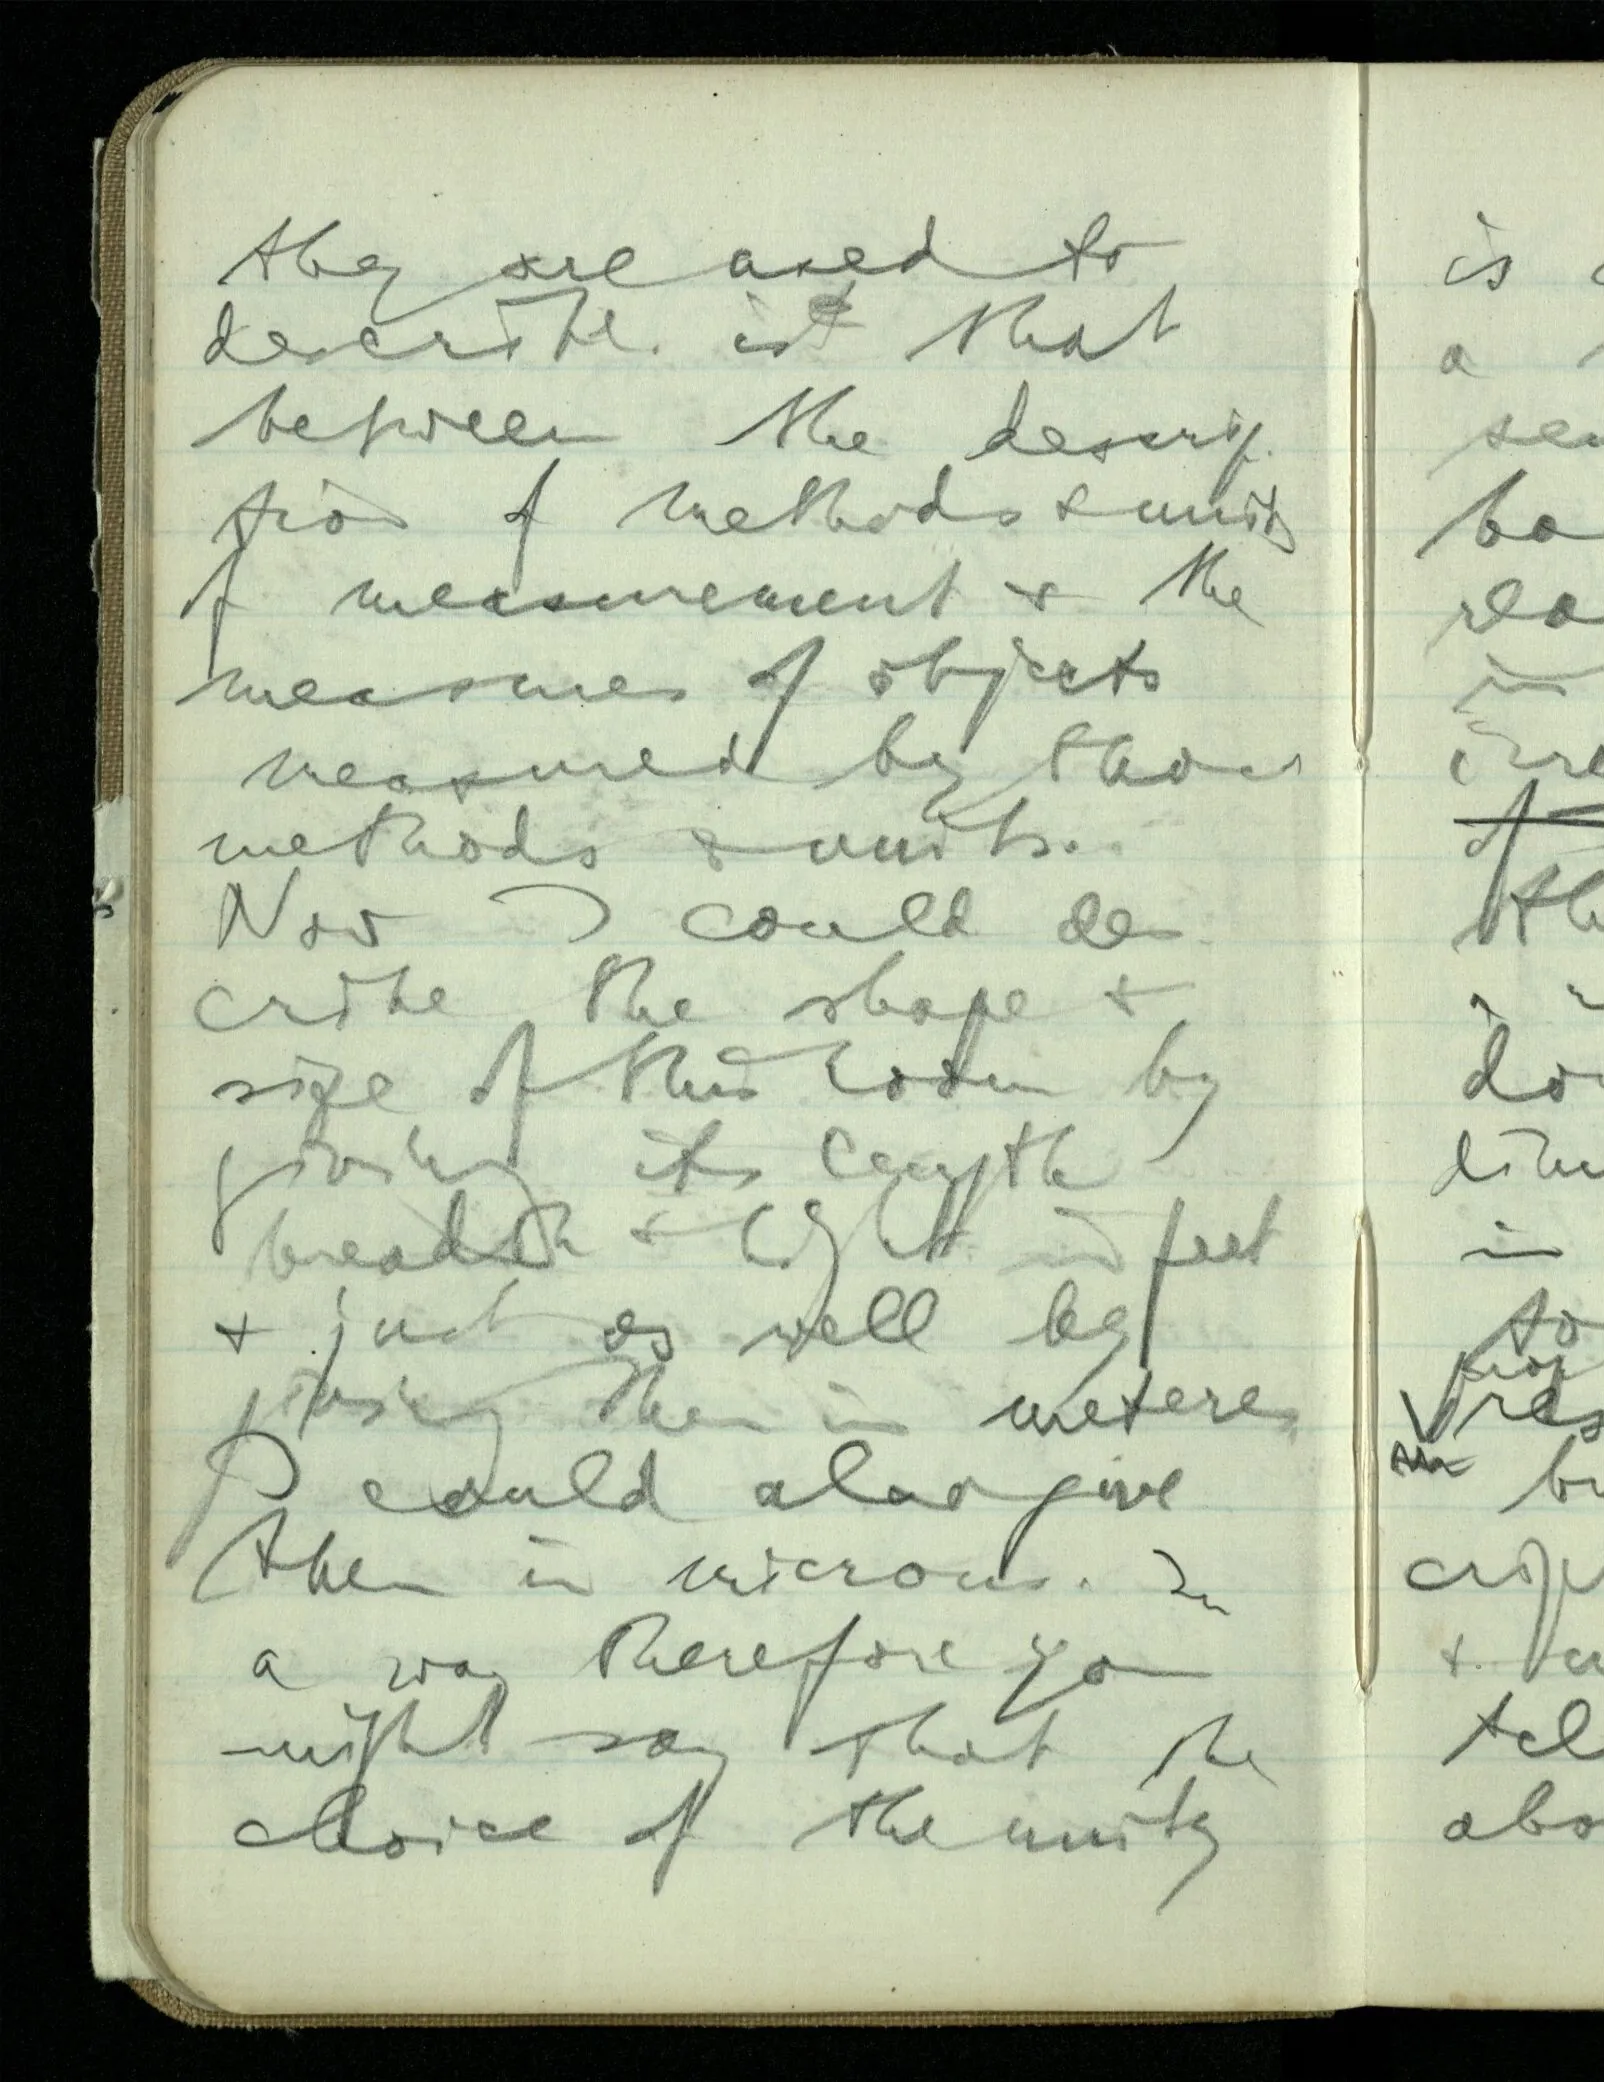 they are used to
describe. is that
between the descrip-
tion of methods & units
of measurement & the
measures of objects
measured by those
methods & units.
Now I could des-
cribe the shape &
size of this room by
giving its length
breadth & hight in feet
& just as well by
giving them in meteres
I could also give
them in microns. In
a way therefore you
might say that the
choice of the units
is
a
in
to